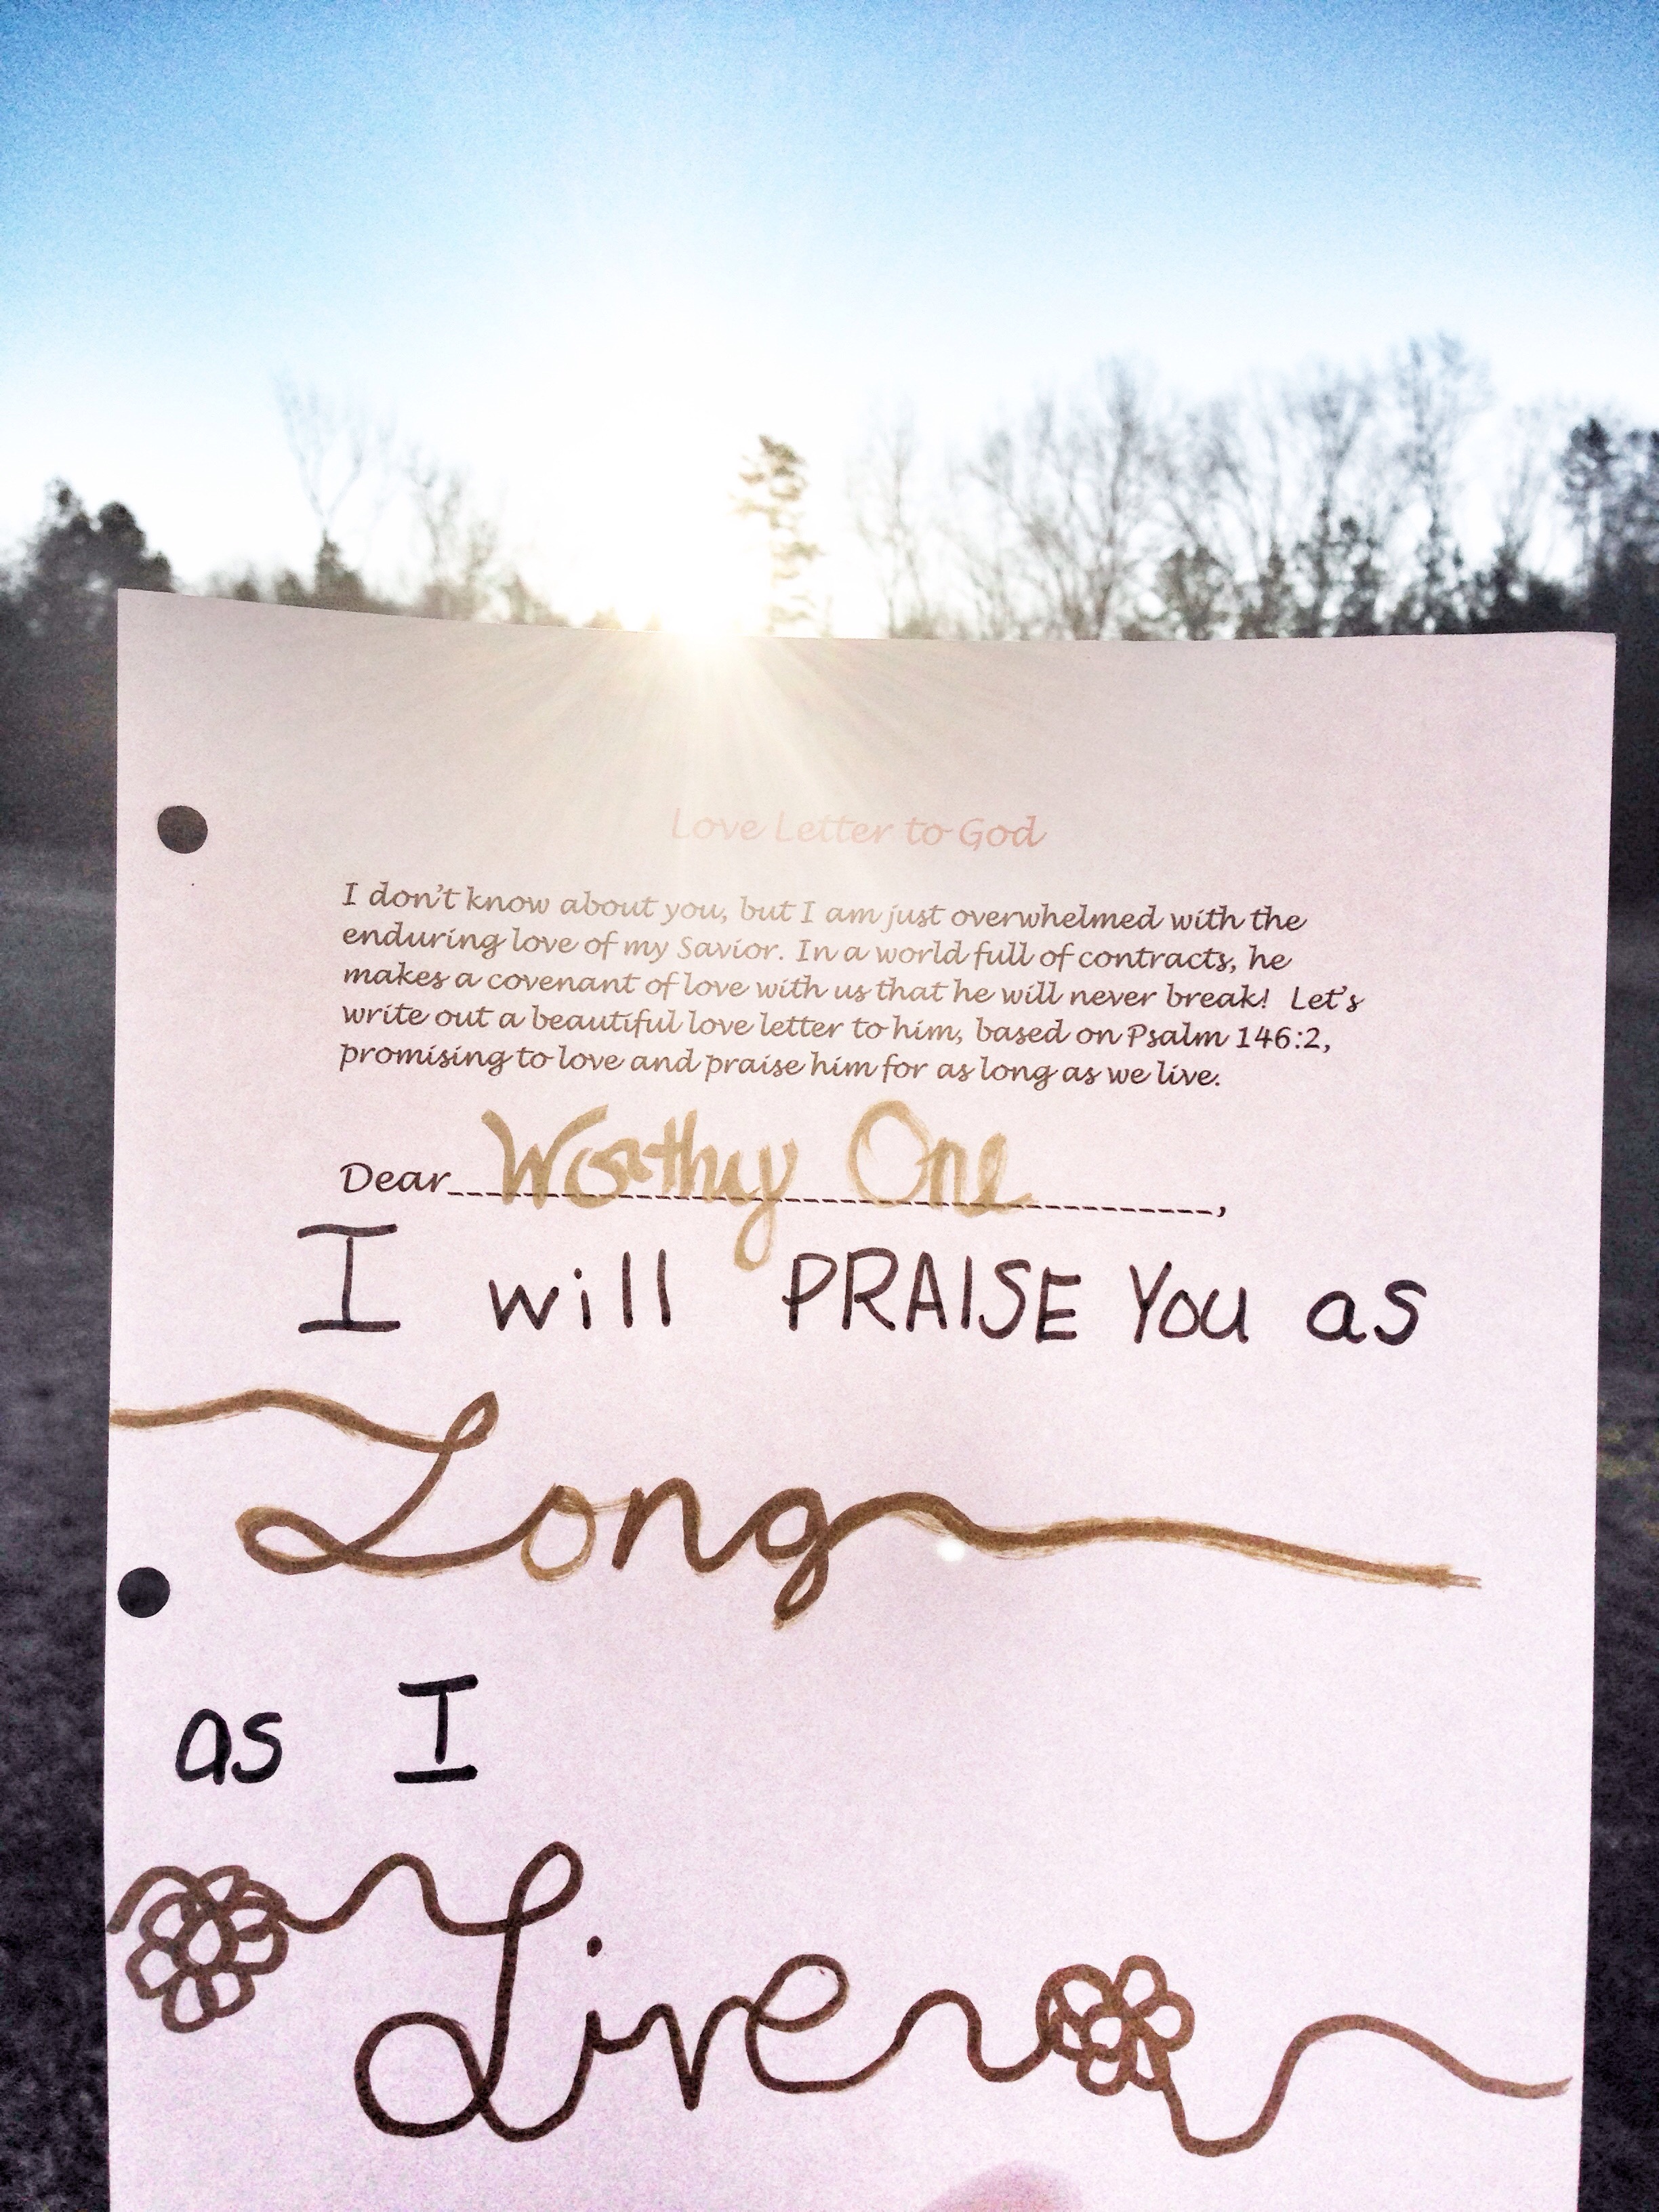 Love Letter to God
I don't know about you, but I am just overwhelmed with the
enduring love of my Savior. In a world full of contracts, he
makes a covenant of love with us that he will never break! Let's
write out a beautiful love letter to him, based on Psalm 146:2,
promising to love and praise him for as long as we live.
Dear Worthy One,
I will PRAISE You as
Long
as I
Live